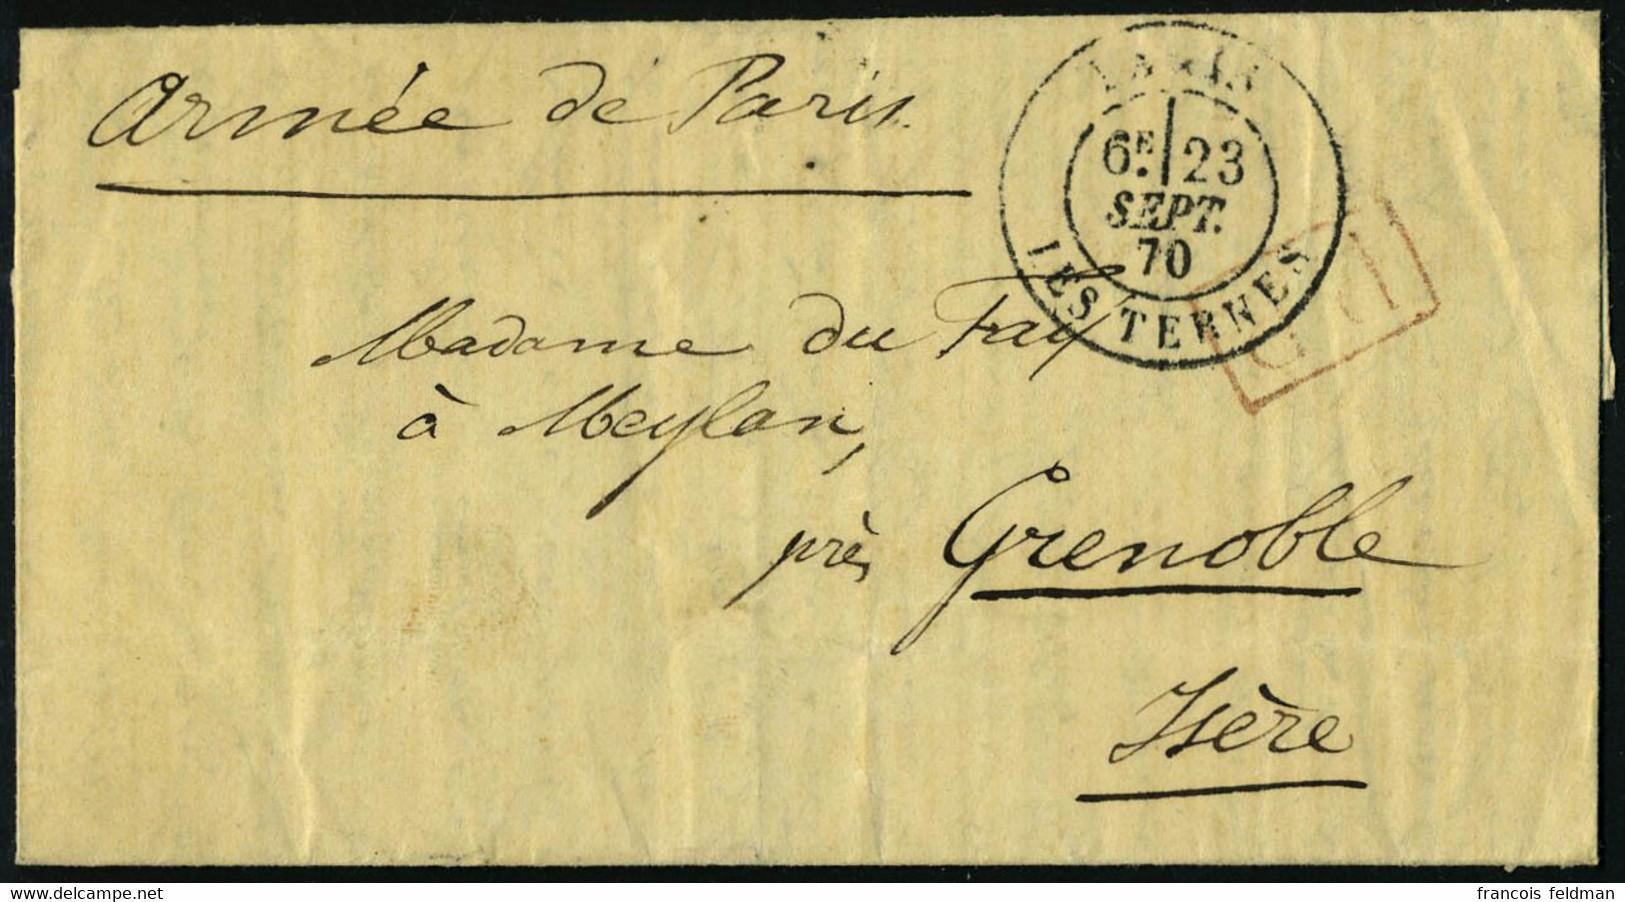 Armée de Paris.
PARIS
6E. 23
SEPT.
70
LES TERNES
Madame du Fay
à Meylan,
près Grenoble
Isère
delcampe.net
francois feldman